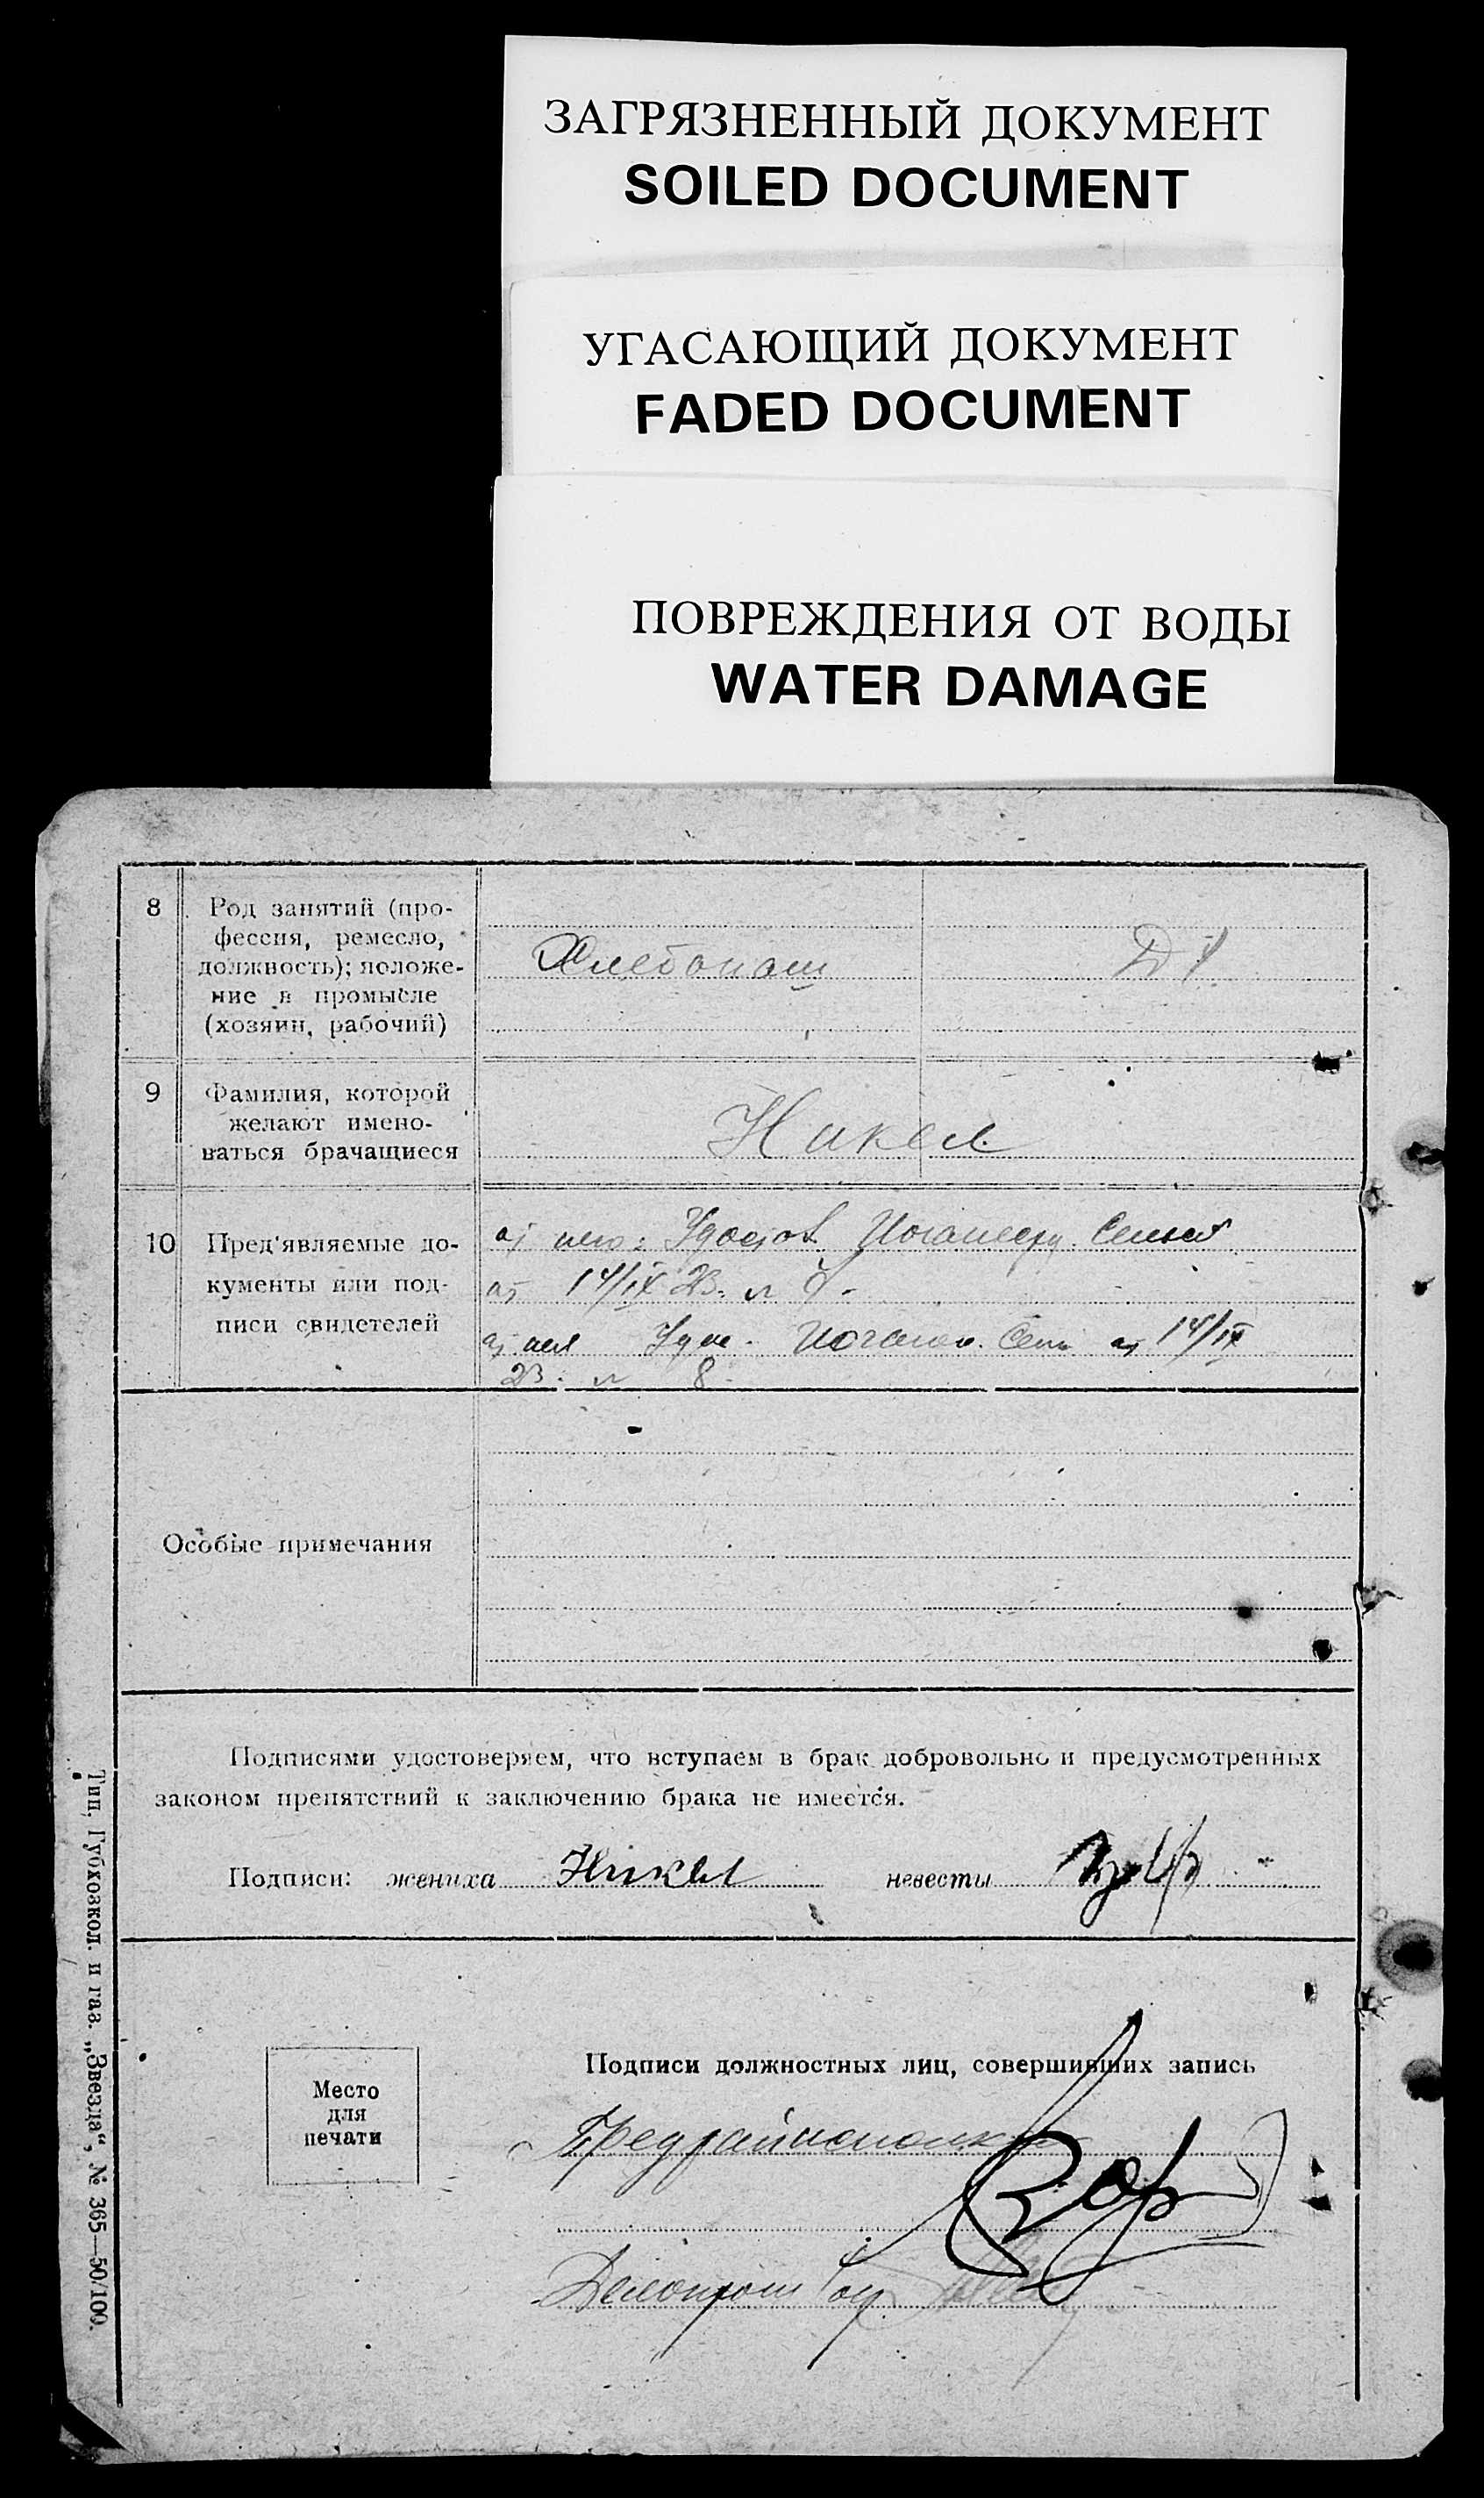 ЗАГРЯЗНЕННЫЙ ДОКУМЕНТ
SOILED DOCUMENT
УГАСАЮЩИЙ ДОКУМЕНТ
FADED DOCUMENT
ПОВРЕЖДЕНИЯ ОТ ВОДЫ
WATER DAMAGE
8
Род занятий (про-
фессия, ремесло,
должность); положе-
ние в промысле
(хозяин, рабочий)
Хлебопаш
9
Фамилия, которой
желают имено-
ваться брачащиеся
Никел
10
Пред'являемые до-
кументы или под-
писи свидетелей
14/IX 23.
14/IX
23. 8
Особые примечания
Подписями удостоверяем, что вступаем в брак добровольно и предусмотренных
законом препятствий к заключению брака не имеется.
Подписи: жениха Никел невесты
Место
для
печати
Подписи должностных лиц, совершивших запись
Предрайисполк
Делопроиз
Тип. Губхозкол. и газ. „Звезда“, № 365—50/100.